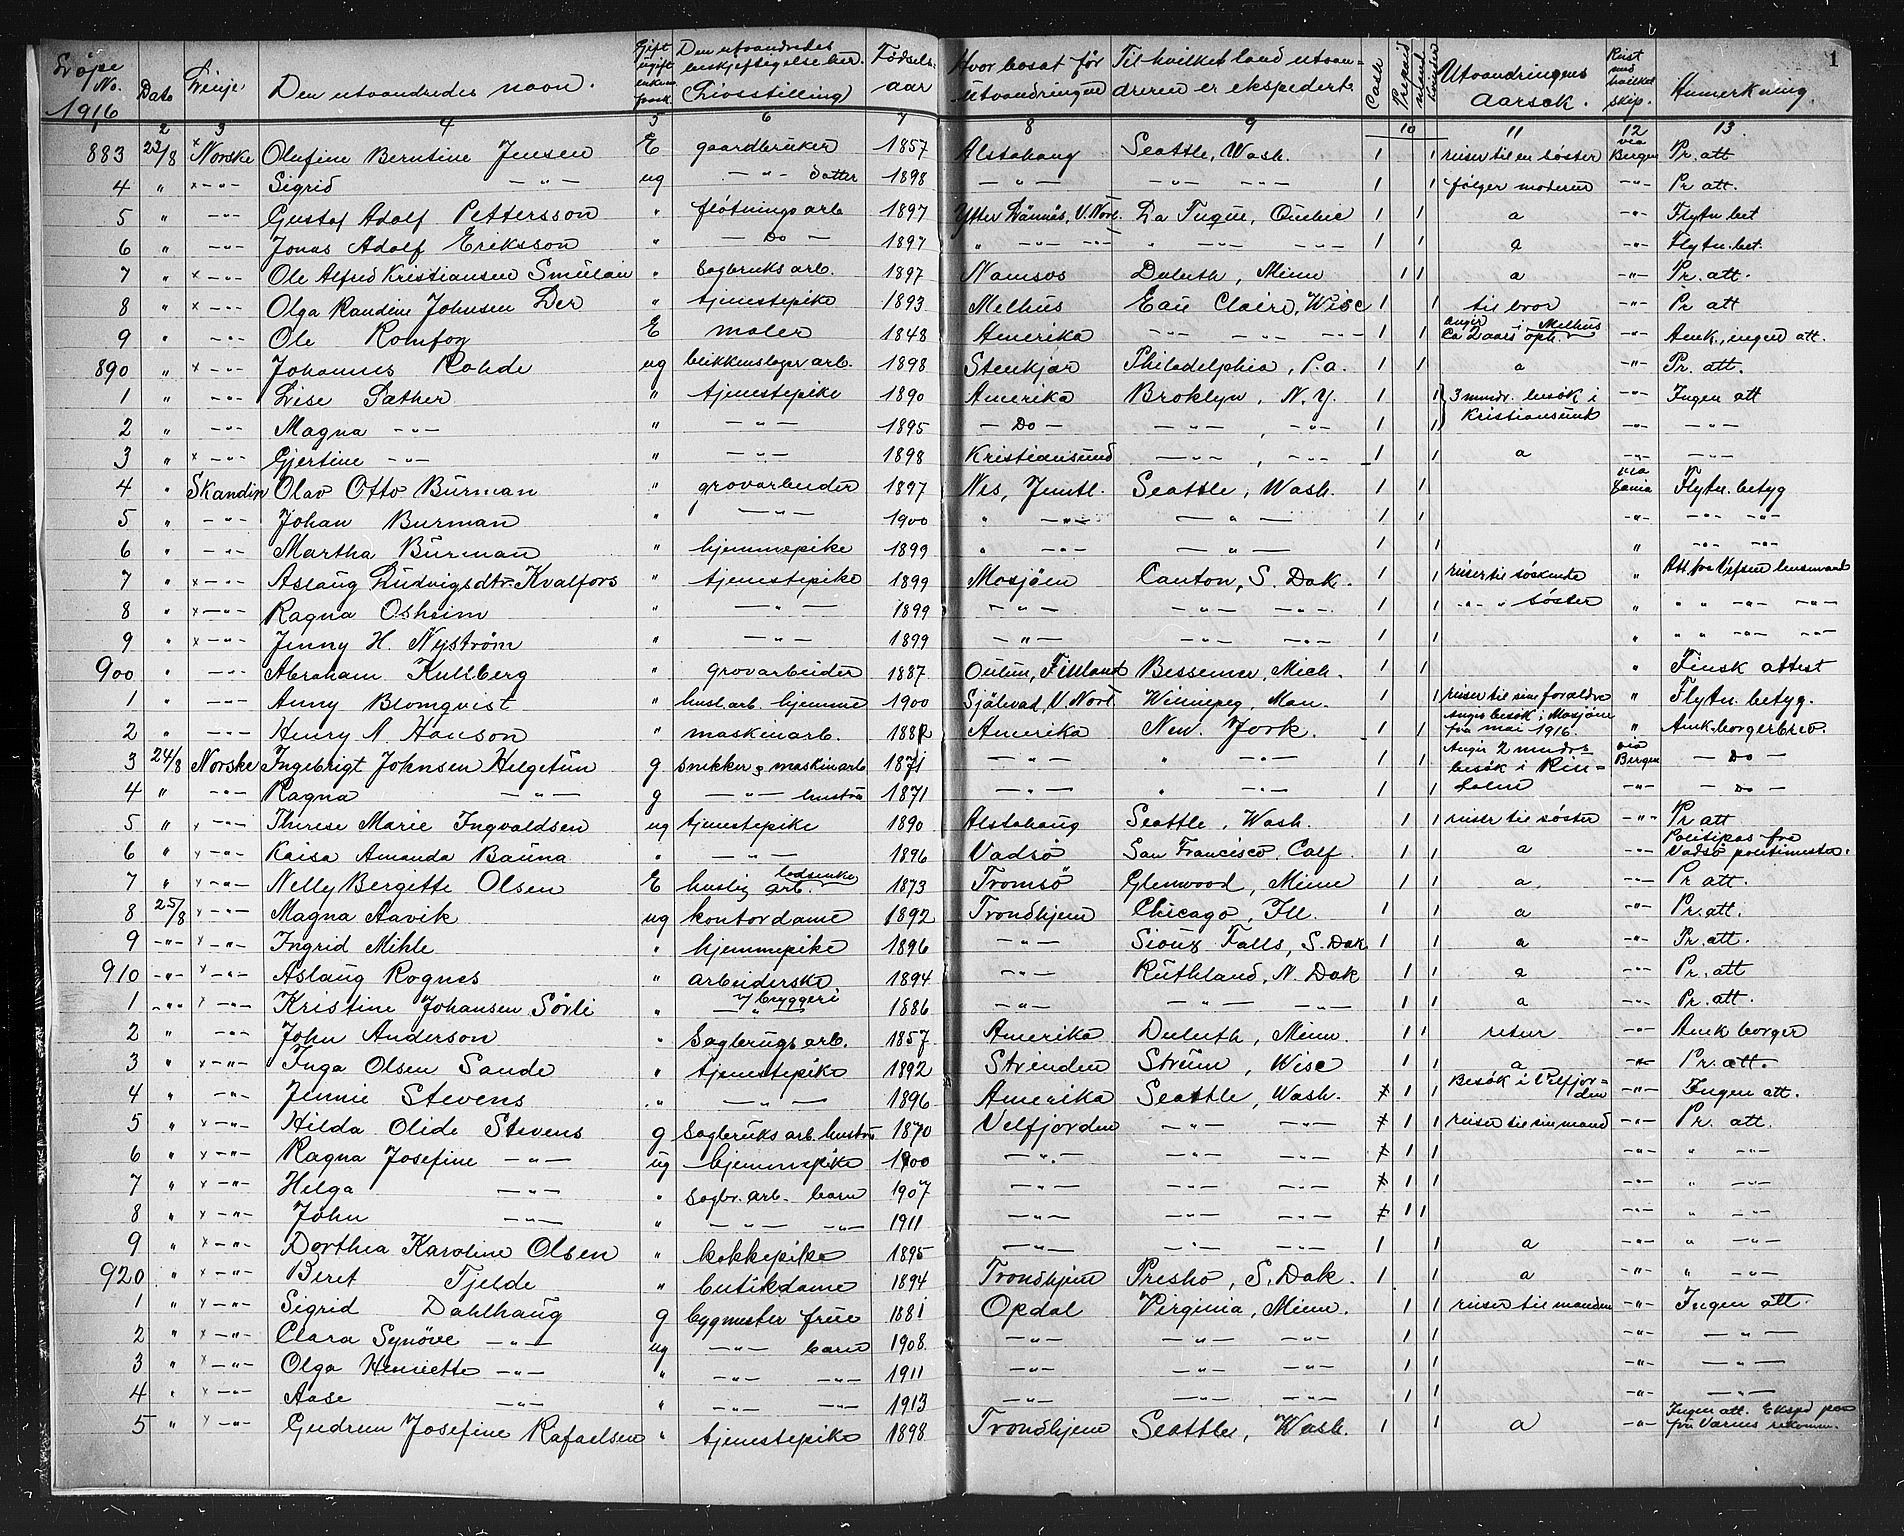 1
Löpe No. 1916 | Dato | Linje | Den utvandredes navn. | Gift ugift enkem. | Den utvandredes beskjeftigelse her. (Livsstilling) | Födsels-aar | Hvor bosat för utvandringen | Til hvilket land utvan-dreren er ekspedert. | Cash | Prepaid | Utvandringens aarsak. | Reist med hvilket skip. | Anmerkning.
1 | 2 | 3 | 4 | 5 | 6 | 7 | 8 | 9 | 10 | 11 | 12 | 13
883 | 23/8 | x Norske | Olufine Berntine Jensen | E | gaardbruker | 1857 | Alstahaug | Seattle, Wash. | 1 | 1 | reiser til en söster | via Bergen | Pr. att
4 | " | x -"- | Sigrid -"- | ug | -"- datter | 1898 | -"- | -"- -"- | 1 | 1 | følger moderen | -"- | Pr att.
5 | " | -"- | Gustaf Adolf Pettersson | " | flötnings arb | 1897 | Ytter Lännäs, V. Norl. | La Tuque, Quebec | 1 | 1 | a | -"- | Flytn bet
6 | " | -"- | Jonas Adolf Eriksson | " | - Do - | 1897 | " -"- -"- | " -"- -"- | 1 | 1 | a | -"- | Flytn. bet.
7 | " | x -"- | Ole Alfred Kristiansen Smulan | " | Sagbruks arb. | 1897 | Namsos | Duluth, Minn | 1 | 1 | a | -"- | Pr. att.
8 | " | x -"- | Olga Randine Johnsen Ler | " | tjenestepike | 1893 | Melhus | Eau Claire, Wisc | 1 | 1 | til bror | -"- | Pr att
9 | " | -"- | Ole | E | maler | 1848 | Amerika | -"- -"- | 1 | 1 | angir i Melhus ca 2 aars oph. | -"- | Amk., ingen att.
890 | " | x -"- | Johannes Rohde | ug | blikkenslager arb. | 1898 | Stenkjær | Philadelphia, P.a. | 1 | 1 | a | -"- | Pr. att.
1 | " | -"- | Lise Sæther | " | tjenestepike | 1890 | Amerika | Broklyn, N.Y. | 1 | 1 | 3 mndr. besök i Kristiansund | -"- | Ingen att
2 | " | -"- | Magna -"- | " | -"- | 1895 | - Do - | -"- , -"- | 1 | 1 | -"- | -"-
3 | " | x -"- | Gjertine -"- | " | -"- | 1898 | Kristiansund | -"- , -"- | 1 | 1 | a | -"- | -"-
4 | " | Skandin | Olav Otto Burman | " | grovarbeider | 1897 | Nes, Jemtl. | Seattle, Wash. | 1 | 1 | via | Flytn. betyg
5 | " | -"- | Johan Burman | " | -"- | 1900 | " -"- | -"- | 1 | 1 | -"- | -"- -"-
6 | " | -"- | Martha Burman | " | hjemmepike | 1899 | " -"- | -"- | 1 | 1 | " | -"- -"-
7 | " | x -"- | Aslaug Ludvigsdtr. Kvalfors | " | tjenestepike | 1899 | Mosjöen | Canton, S. Dak. | 1 | 1 | reiser til söskende | " | Att fra Vefsen lensmand
8 | " | x -"- | Ragna Osheim | " | -"- | 1899 | -"- | -"- -"- | 1 | 1 | -"- " söster | " | " " -"- -"-
9 | " | x -"- | Jenny H. Nyström | " | -"- | 1899 | -"- | -"- -"- | 1 | 1 | " | " " -"- -"-
900 | " | -"- | Abraham Kullberg | " | grovarbeider | 1887 | Oulun, Finland | Bessemer, Mich. | 1 | 1 | " | Finsk attest
1 | " | -"- | Anny Blomqvist | " | husl. arb. hjemme | 1900 | Själevad, V. Norl. | Winnipeg, Man. | 1 | 1 | reiser til sine foraldre | " | Flytn. betyg.
2 | " | -"- | Henry A. Hanson | " | maskinarb. | 1882 | Amerika | New. York. | 1 | 1 | Angir besök i Mosjöen fra mai 1916. | " | Amk. borgerbrev.
3 | 24/8 | Norske | Ingebrigt Johnsen Helgetun | g | snekker & maskinarb | 1871 | -"- | " -"- | 1 | 1 | Angir 2 mndrs besök i Rin- | via Bergen | - Do -
4 | " | -"- | Ragna -"- | g | -"- hustru | 1871 | -"- | " -"- | 1 | 1 | dalen | -"- | - Do -
5 | " | x -"- | Therese Marie Ingvaldsen | ug | tjenestepike | 1890 | Alstahaug | Seattle, Wash. | 1 | 1 | reiser til söster | -"- | Pr att
6 | " | x -"- | Kaisa Amanda Bauna | " | -"- | 1896 | Vadsö | San Francisco, Calf. | 1 | 1 | a | -"- | Politipas fra Vadsö politimester.
7 | " | x -"- | Nelly Bergitte Olsen | E | huslig arb. | 1873 | Tromsö | Glenwood, Minn | 1 | 1 | a. | -"- | Pr. att.
8 | 25/8 | x -"- | Magna Aavik | ug | kontordame | 1892 | Trondhjem | Chicago, Ill. | 1 | 1 | a | -"- | Pr. att.
9 | -"- | x -"- | Ingrid Mihle | " | hjemmepike | 1896 | -"- | Sioux Falls, S. Dak | 1 | 1 | a | -"- | Pr. att.
910 | -"- | x -"- | Aslaug Rognes | " | arbeiderske | 1894 | -"- | Ruthland, N. Dak | 1 | 1 | a | -"- | Pr. att
1 | -"- | x -"- | Kristine Johansen Sörli | " | -"- v/ bryggeri | 1886 | -"- | -"- -"- | 1 | 1 | a | -"- | Pr. att.
2 | " | -"- | John Anderson | " | Sagbrugs arb. | 1857 | Amerika | Duluth, Minn. | 1 | 1 | retur | -"- | Amk borger
3 | " | x -"- | Inga Olsen Sande | " | tjenestepike | 1892 | Strinden | Strum, Wisc | 1 | 1 | a | -"- | Pr. att.
4 | " | -"- | Jennie Stevens | " | -"- | 1896 | Amerika | Seattle, Wash. | 1 | 1 | Besök i Velfjor-den | -"- | Ingen att.
5 | " | x -"- | Hilda Olide Stevens | g | Sagbruks arb. hustru | 1870 | Velfjorden | -"- -"- | 1 | 1 | reiser til sin mand | -"- | Pr. att.
6 | " | x -"- | Ragna Josefine -"- | ug | hjemmepike | 1900 | -"- | -"- -"- | 1 | 1 | -"- | " -"-
7 | " | x -"- | Helga -"- | " | Sagbr. arb. barn | 1907 | -"- | -"- -"- | 1 | 1 | -"- | " -"-
8 | " | x -"- | John -"- | " | -"- -"- | 1911 | -"- | -"- -"- | 1 | 1 | -"- | " -"-
9 | " | x -"- | Dorthea Karoline Olsen | " | kokkepike | 1895 | -"- | -"- -"- | 1 | 1 | a | -"- | " -"-
920 | " | x -"- | Beret Fjelde | " | butikdame | 1894 | Trondhjem | Presho, S. Dak. | 1 | a | -"- | " -"-
1 | " | x -"- | Sigrid Dahlhaug | g | bygmester frue | 1881 | Opdal | Virginia, Minn. | 1 | 1 | reiser til manden | -"- | Ingen att.
2 | " | x -"- | Clara Synöve -"- | ug | -"- barn | 1908. | -"- | -"- -"- | 1 | 1 | -"- | -"-
3 | " | x -"- | Olga Henriette -"- | " | -"- -"- | 1911 | -"- | -"- -"- | 1 | 1 | -"- | -"-
4 | " | x -"- | Aase -"- | " | -"- -"- | 1913 | -"- | -"- -"- | 1 | 1 | -"- | -"-
5 | " | x -"- | Gudrun Josefine Rafaelsen | " | tjenestepike | 1898 | Trondhjem | Seattle, Wash. | 1 | 1 | a | -"- | Ingen att. Eksped paa fra Varnes rekomm.